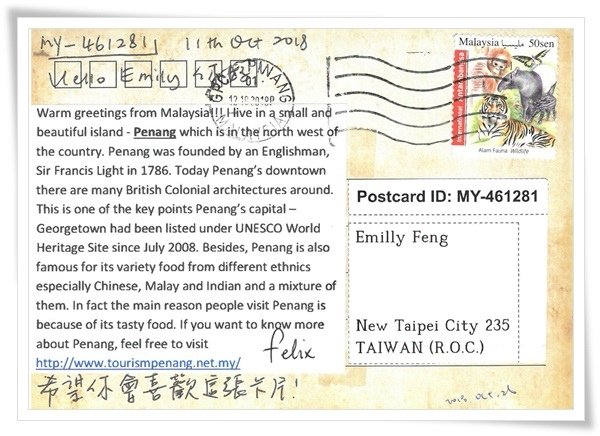 MY-461281 11th Oct 2018
Hello Emily
Malaysia مليسيا 50sen
Alam Fauna Wildlife
Warm greetings from Malaysia!!! I live in a small and
beautiful island - Penang which is in the north west of
the country. Penang was founded by an Englishman,
Sir Francis Light in 1786. Today Penang's downtown
there are many British Colonial architectures around.
This is one of the key points Penang's capital –
Georgetown had been listed under UNESCO World
Heritage Site since July 2008. Besides, Penang is also
famous for its variety food from different ethnics
especially Chinese, Malay and Indian and a mixture of
them. In fact the main reason people visit Penang is
because of its tasty food. If you want to know more
about Penang, feel free to visit
http://www.tourismpenang.net.my/
felix
希望你會喜歡這張卡片!
Postcard ID: MY-461281
Emilly Feng
New Taipei City 235
TAIWAN (R.O.C.)